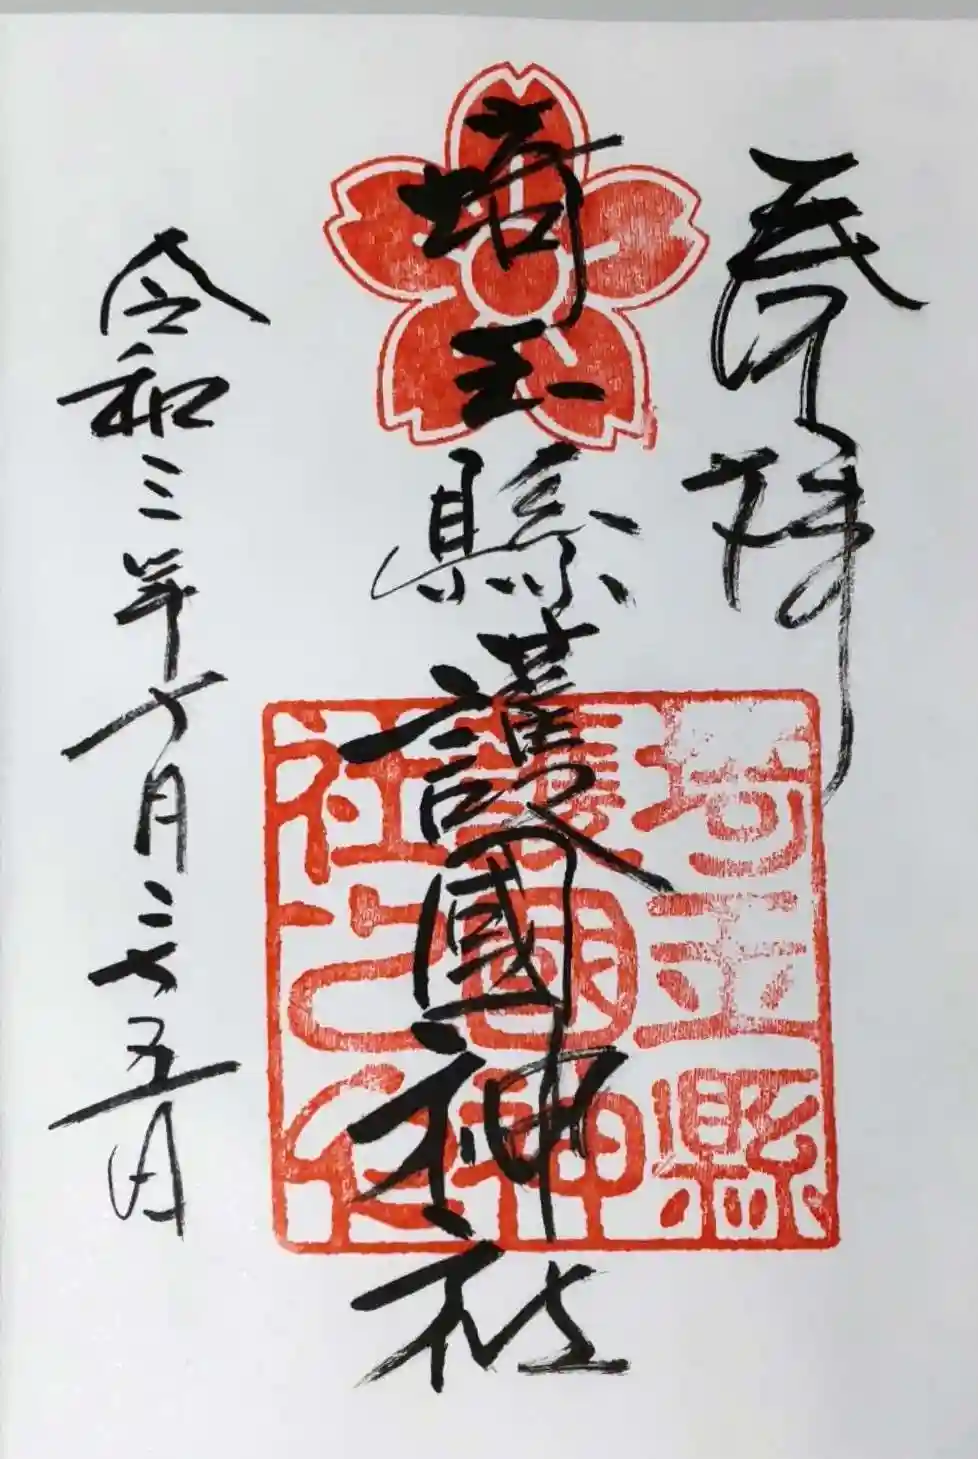 奉拝
埼玉縣護國神社
令和三年十月二十五日
埼玉縣
護國神
社之印